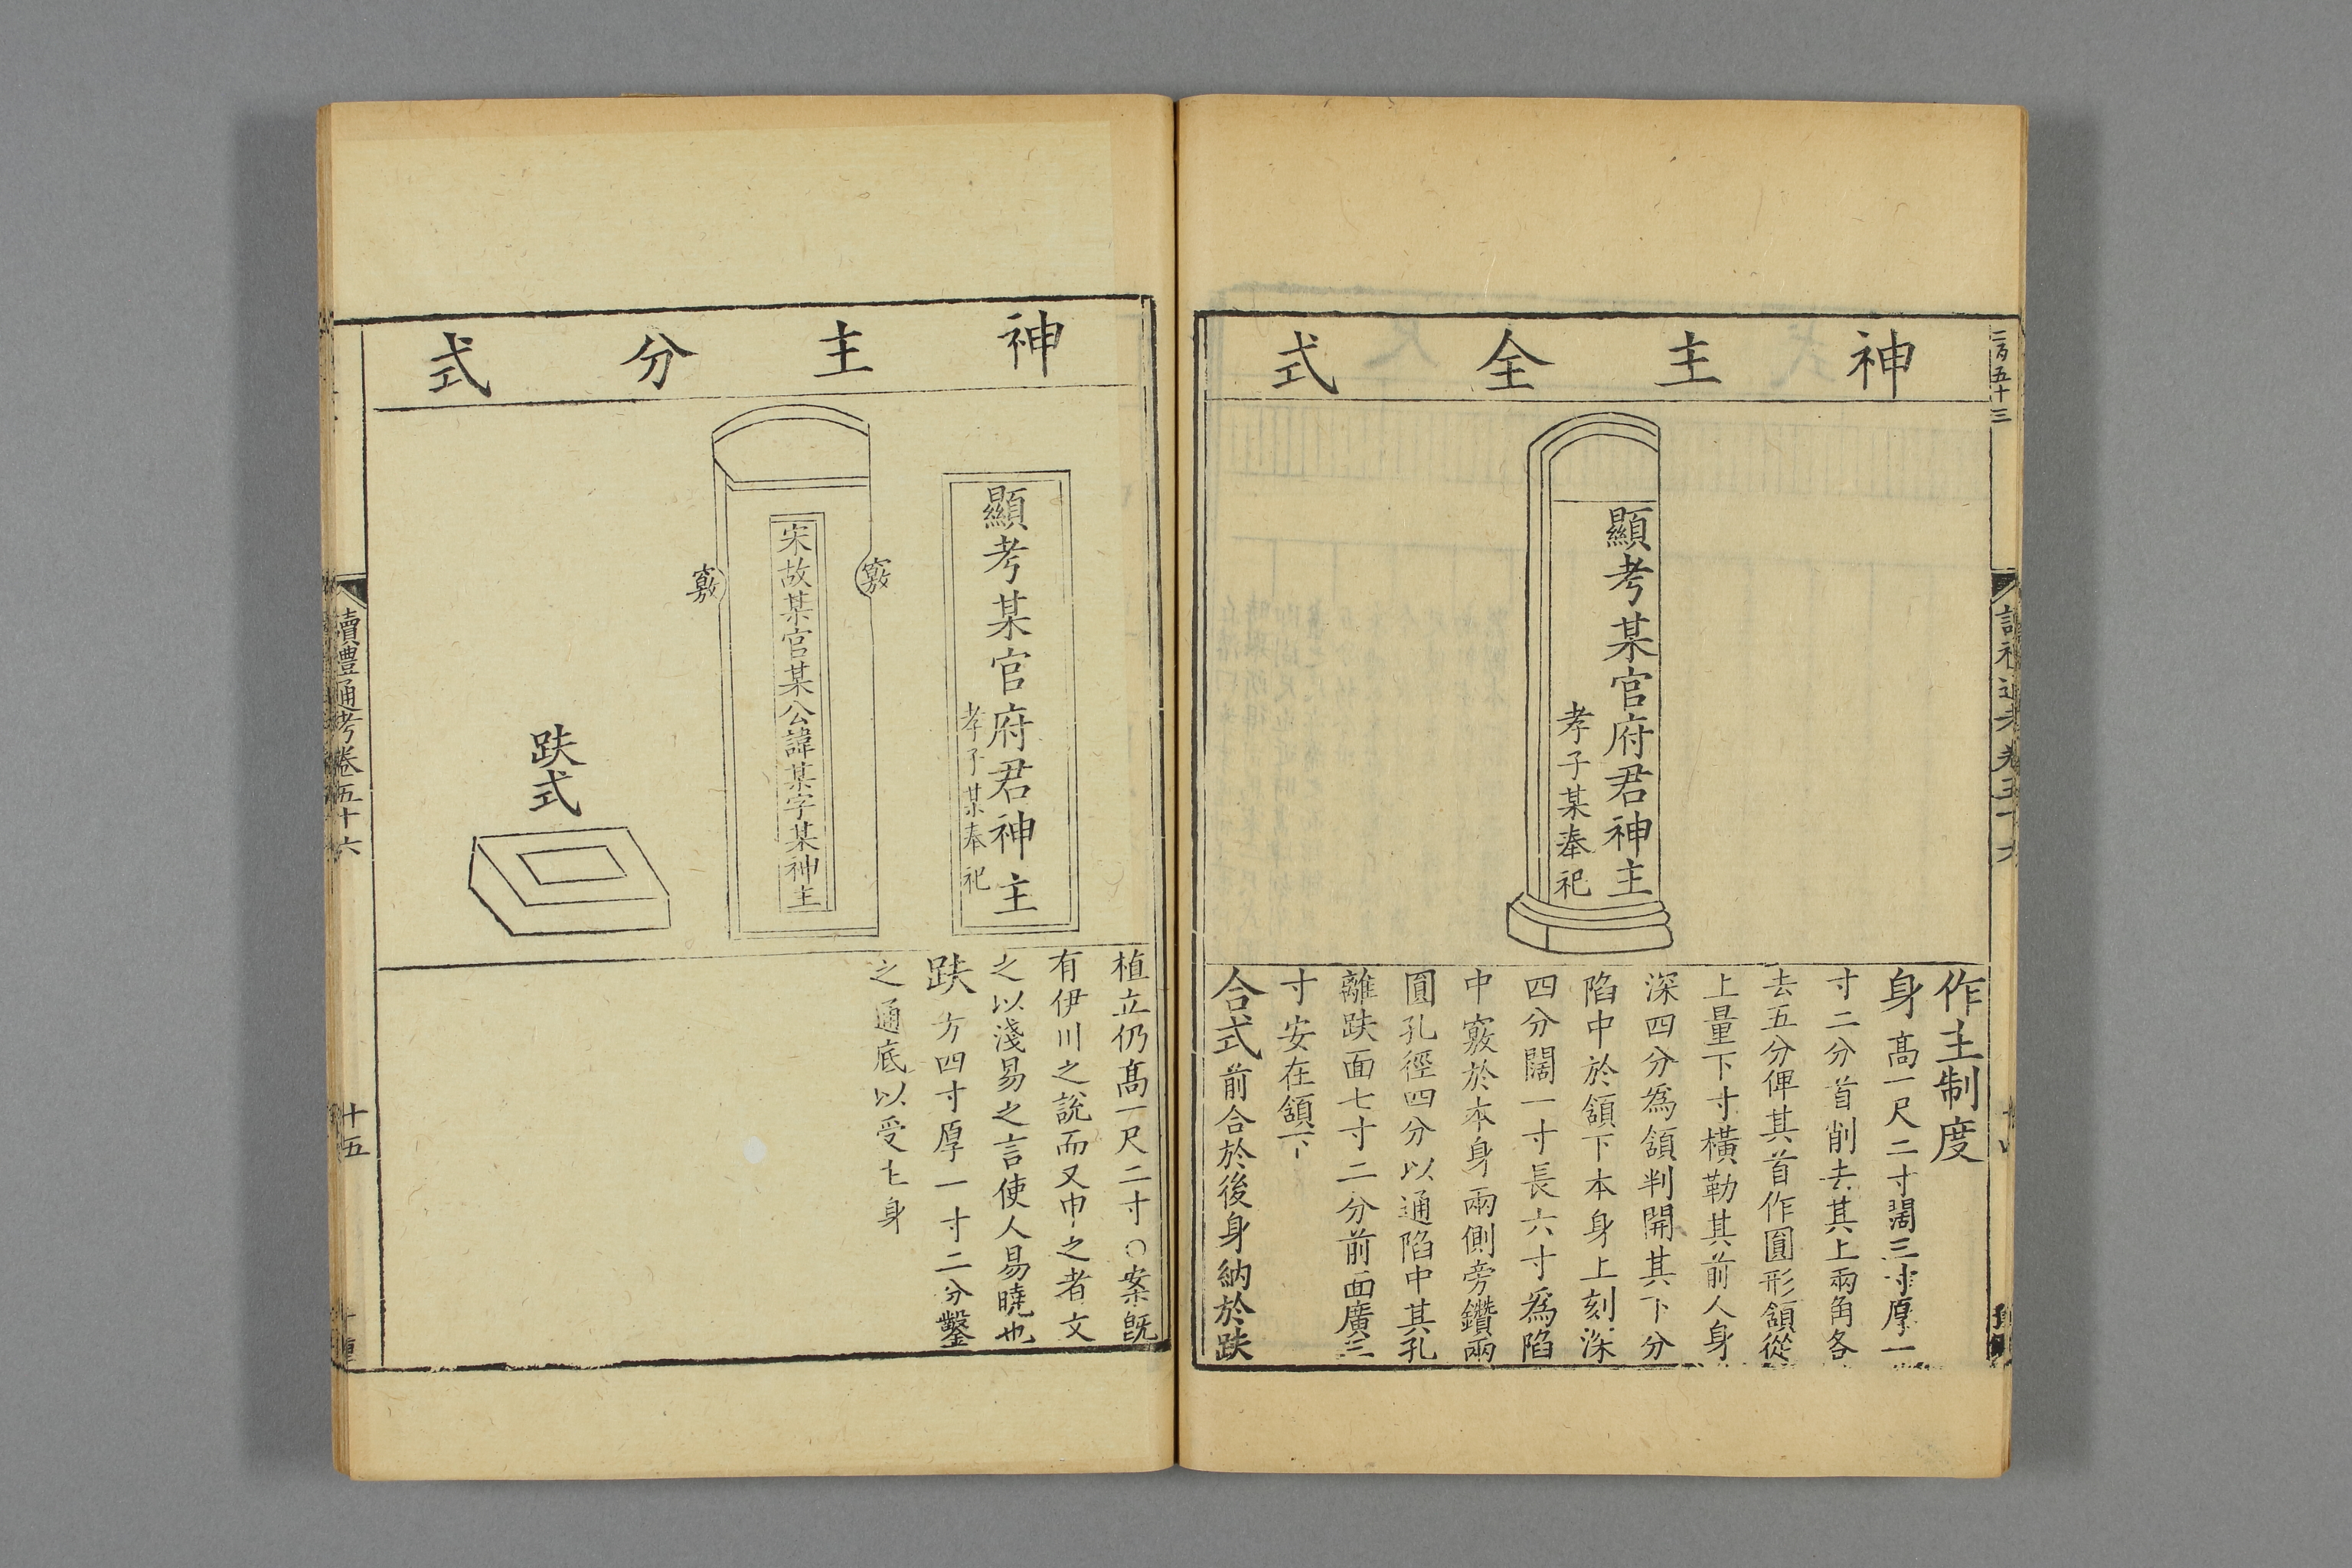 二百五十三
神主全式
顯考某官府君神主
孝子某奉祀
作主制度
身高一尺二寸闊三寸厚一
寸二分首削去其上兩角各
去五分俾其首作圓形頷從
上量下寸橫勒其前人身
深四分為頷判開其下分
陷中於頷下本身上刻深
四分闊一寸長六寸為陷
中竅於本身兩側旁鑽兩
圓孔徑四分以通陷中其孔
離趺面七寸二分前面廣三
寸安在頷下
合式前合於後身納於趺
神主分式
顯考某官府君神主
孝子某奉祀
竅
宋故某官某公諱某字某神主
竅
趺式
植立仍高一尺二寸○案既
有伊川之說而又申之者文
之以淺易之言使人易曉也
趺方四寸厚一寸二分鑿
之通底以受主身
讀禮通考卷五十六
十五